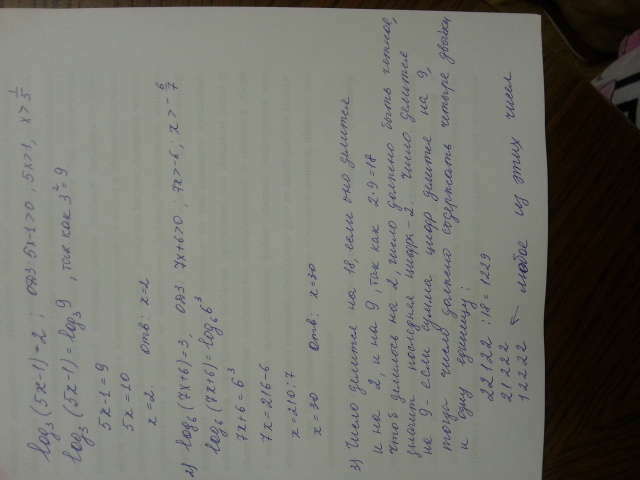 log₃(5x-1)=2 ; одз: 5x-1>0 ; 5x>1, x>1/5
log₃(5x-1)=log₃9 , так как 3²=9
5x-1=9
5x=10
x=2. отв: x=2
2) log₆(7x+6)=3, одз: 7x+6>0 ; 7x>-6; x>-6/7
log₆(7x+6)=log₆6³
7x+6=6³
7x=216-6
x=210:7
x=30 отв: x=30
3) Число делится на 18, если оно делится
и на 2, и на 9, так как 2·9=18
чтоб делилось на 2, число должно быть четное,
значит последняя цифра - 2. Число делится
на 9- если сумма цифр делится на 9,
тогда число должно содержать четыре двойки
и одну единицу:
22122 :18=1229
21222
12222 ← любое из этих чисел